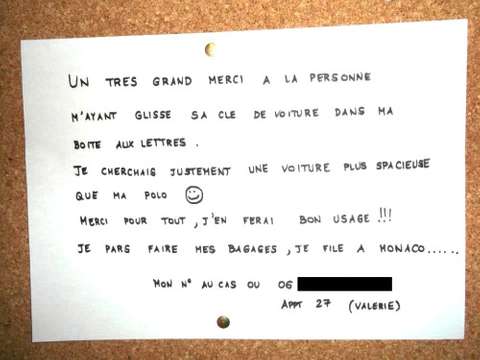 UN TRES GRAND MERCI A LA PERSONNE
M'AYANT GLISSE SA CLE DE VOITURE DANS MA
BOITE AUX LETTRES.
JE CHERCHAIS JUSTEMENT UNE VOITURE PLUS SPACIEUSE
QUE MA POLO ☺
MERCI POUR TOUT, J'EN FERAI BON USAGE !!!
JE PARS FAIRE MES BAGAGES, JE FILE A MONACO.....
MON N° AU CAS OU 06
APPT 27 (VALERIE)